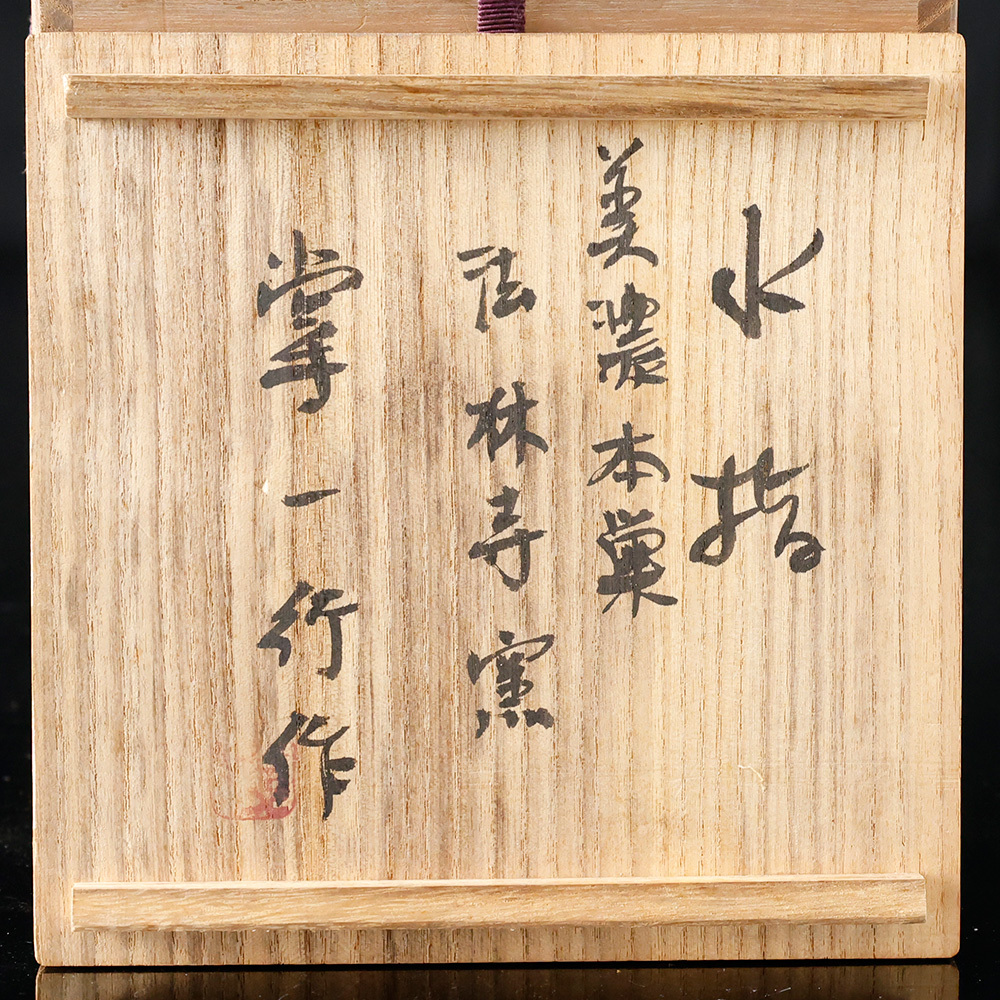 水指
美濃本巣
法林寺窯
掌一行作